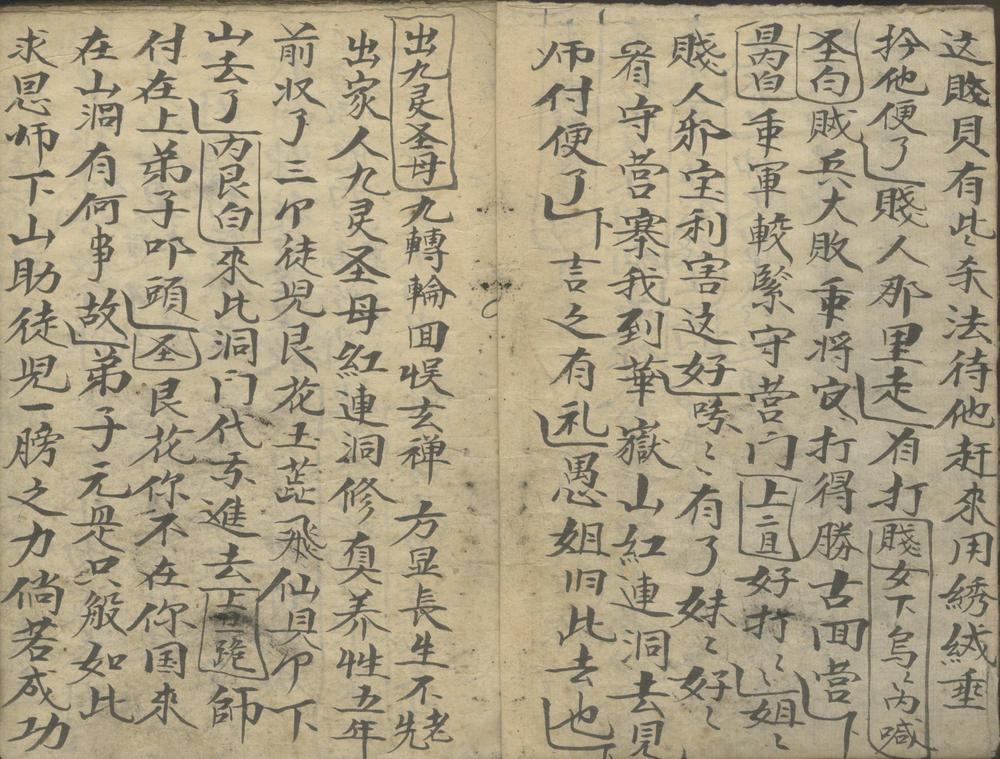 这贱貝有此〻杀法待他赶來用綉绒垂
扲他便了賤人那里走有打賤女下烏〻内喊
圣白贼兵大敗重将官打得勝古囬营下
昺内白重軍較緊守营门上二旦好打〻〻姐〻
賤人邪宝利害这好咳〻有了妹〻好〻
看守营寨我到華嶽山紅連洞去見
师付便了下言之有礼愚姐旧此去也下
出九灵圣母九轉輪囬悮玄禅方显長生不老先
出家人九灵圣母紅連洞修真养性五年
前収了三个徒児艮花玉芸飛仙具个下
山去了内艮白來此洞门代奈進去上旦跪師
付在上弟子叩頭圣艮花你不在你国來
在山洞有何事故弟子元是只般如此
求恩师下山助徒児一膀之力倘若成功